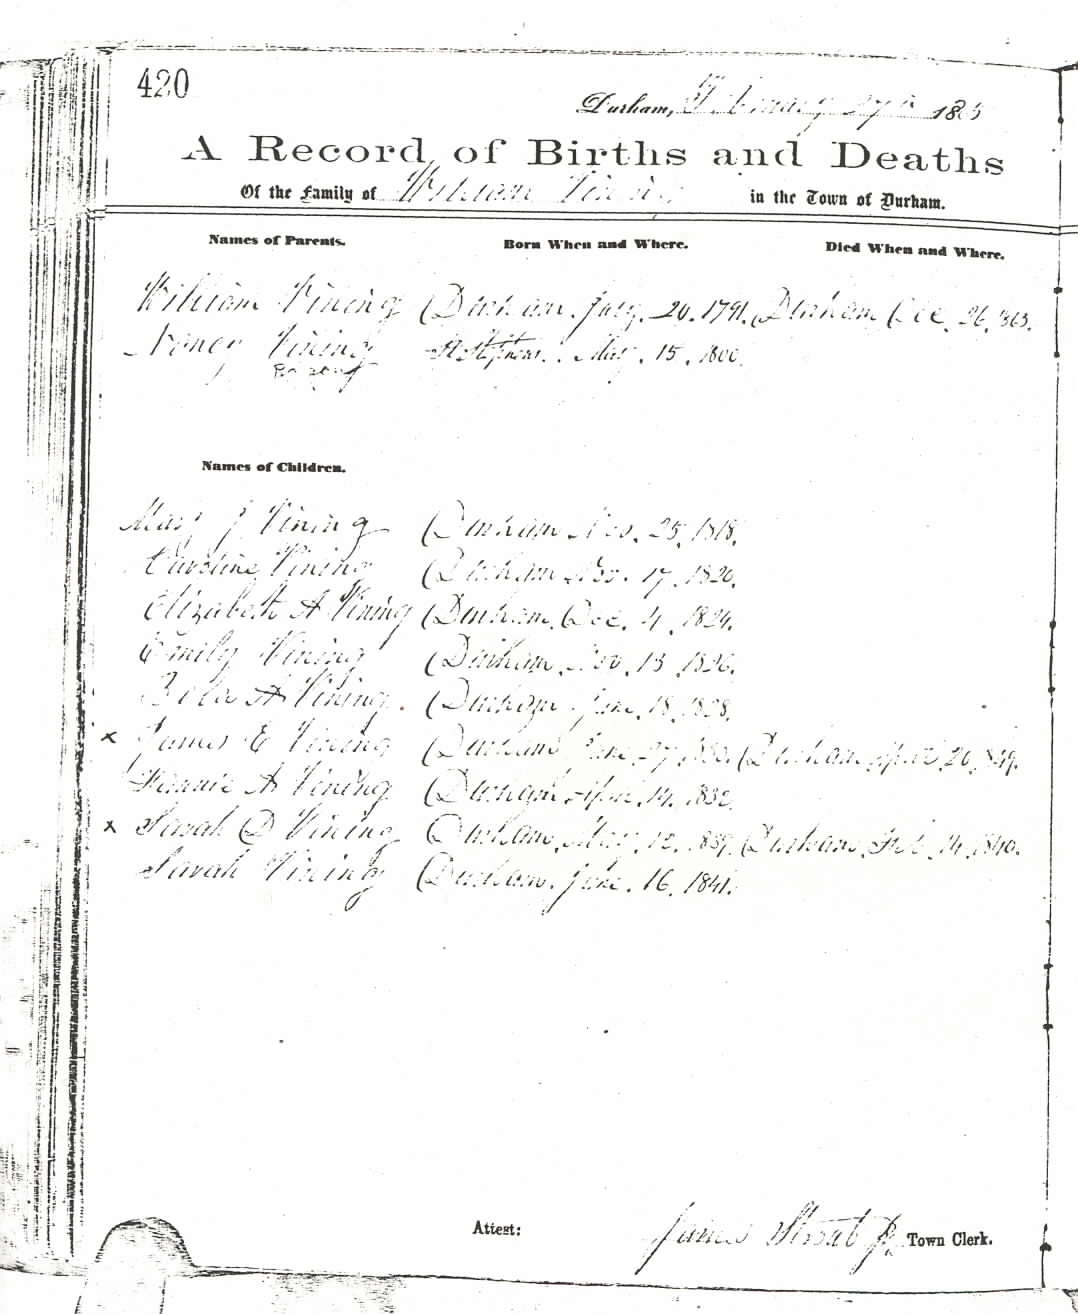 420
Durham, February 27th 1865
A Record of Births and Deaths
Of the Family of William Vining in the Town of Durham.
Names of Parents. Born When and Where. Died When and Where.
William Vining Durham. July. 20. 1791. Durham Dec. 26, 1863.
Nancy Vining St Stephens. May. 15. 1800.
Names of Children.
Mary J Vining Durham Nov. 25, 1818.
Caroline Vining Durham Nov. 17, 1820.
Elizabeth A Vining Durham, Dec. 4, 1824.
Emily Vining Durham, Nov. 13, 1826.
A Vining. Durham June, 18, 1828.
x James E Vining Durham June 27, Durham April, 20, 1849.
A Vining Durham 14, 1832.
x Sarah D Vining Durham, 12, Durham, Feb. 14, 1840.
Sarah Vining Durham. June. 16, 1841.
Attest: James Strout Jr. Town Clerk.